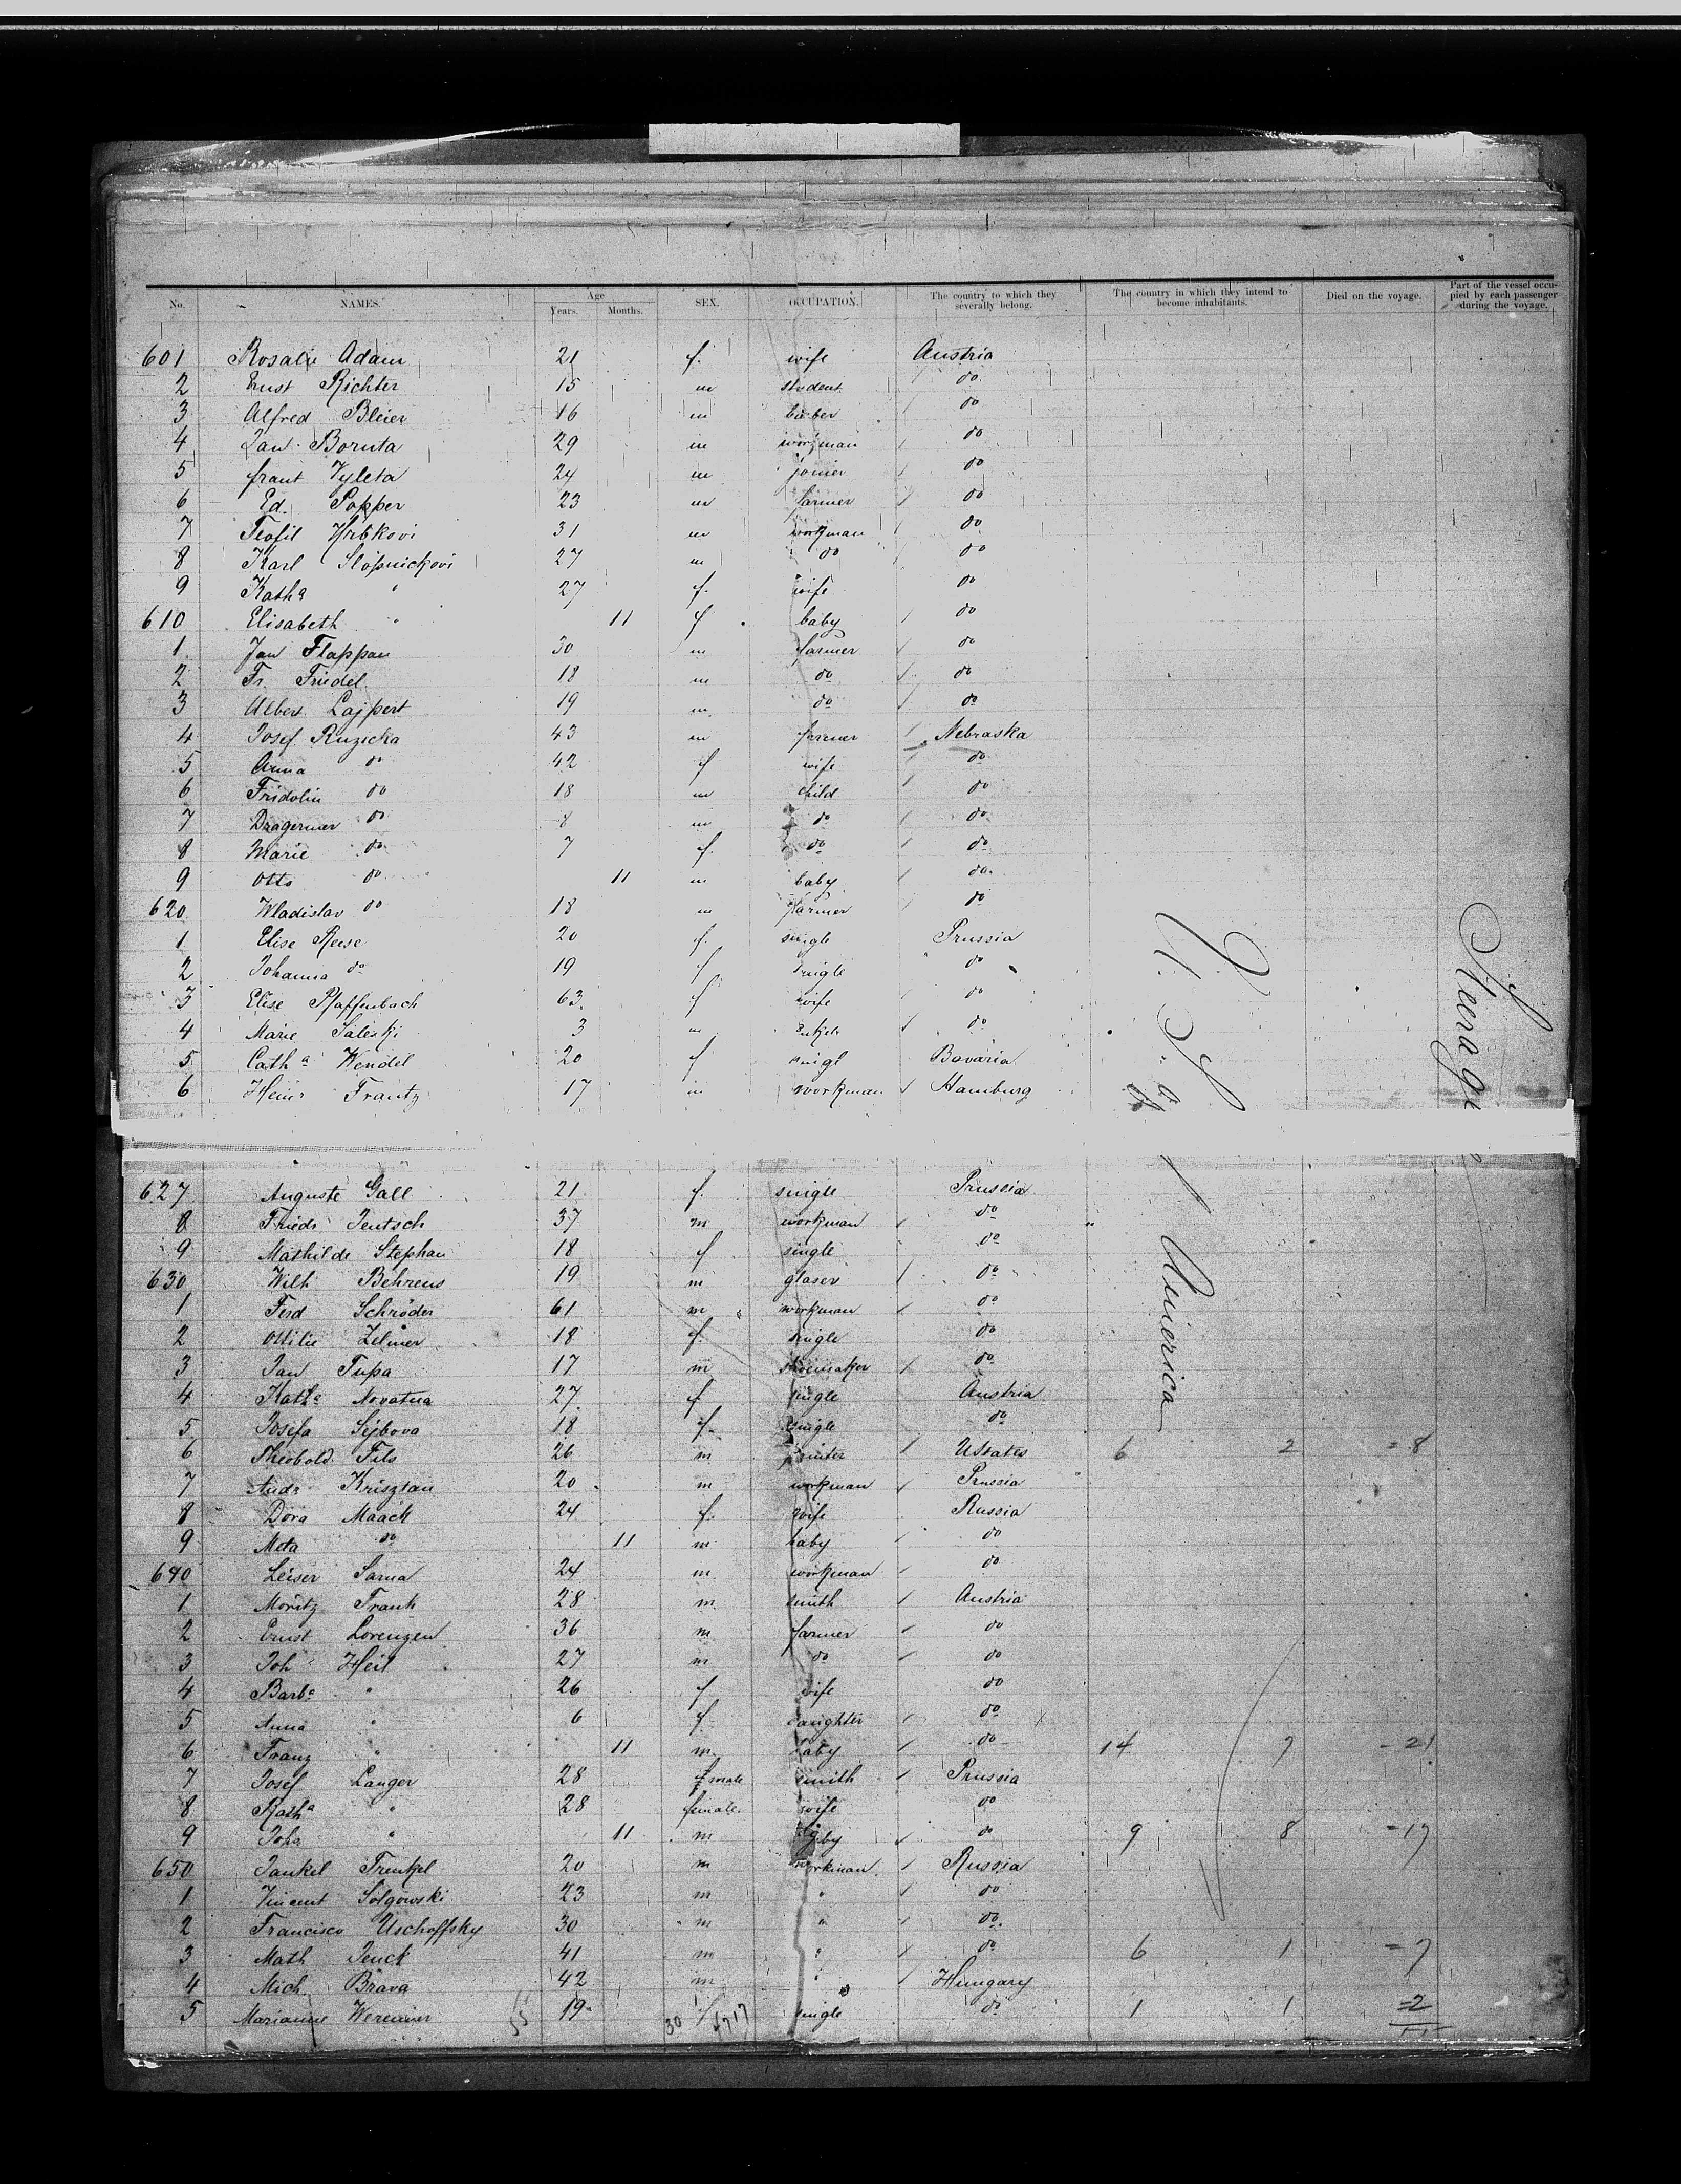 No. NAMES. Age Years. Months. SEX. OCCUPATION. The country to which they severally belong. The country in which they intend to become inhabitants. Died on the voyage. Part of the vessel occupied by each passenger during the voyage.
601 Rosalie Adam 21 f. wife Austria
2 Ernst Richter 15 m student do
3 Alfred Bleier 16 m do
4 Jan Boruta 29 m workman do
5 Frant Vyleta 24 m joiner do
6 Ed. Popper 23 m farmer do
7 Teofil Hribkovi 31 m workman do
8 Karl Slopnickovi 27 m do do
9 Katha " 27 f. wife do
610 Elisabeth " 11 f baby do
1 Jan Flappan 30 m farmer do
2 Fr. Friedel 18 m do do
3 Albert Lajpert 19 m do do
4 Josef Ruzicka 43 m farmer Nebraska
5 Anna do 42 f wife do
6 Fridolin do 18 m child do
7 Dragermer do 8 m do do
8 Marie do 7 f. do do
9 Otto do 11 m baby do
620 Wladislav do 18 m farmer do
1 Elise Reese 20 f. single Prussia
2 Johanna do 19 f single do
3 Elise Pfaffenbach 63 f wife do
4 Marie Saleski 3 m do
5 Catha Wendel 20 f singl Bavaria
6 Heinr Frantz 17 m workman Hamburg
U. S. of America
Steerage
627 Auguste Gall 21 f. single Prussia
8 Friedr Jentsch 37 m workman do
9 Mathilde Stephan 18 f single do
630 Wilh Behrens 19 m glaser do
1 Ferd Schröder 61 m workman do
2 Ottilie Zelmer 18 f. single do
3 Jan Tupa 17 m shoemaker do
4 Katha Novatna 27 f single Austria
5 Josefa Sejbova 18 f. single do
6 Theobold Fils 26 m UStates 6 2 = 8
7 Andr Krisztan 20 m workman Prussia
8 Dora Maack 24 f. wife Russia
9 Meta do 11 m baby do
640 Leiser Sarna 24 m workman do
1 Moritz Frank 28 m smith Austria
2 Ernst Lorenzen 36 m farmer do
3 Joh Heil 27 m do do
4 Barba " 26 f wife do
5 Anna " 6 f daughter do
6 Franz " 11 m baby do 14 7 - 21
7 Josef Langer 28 male smith Prussia
8 Katha " 28 female wife do
9 Joh " 11 m baby do 9 8 = 17
650 Jankel Frenkel 20 m workman Russia
1 Vincent Solgowski 23 m " do
2 Francisco Uschoffsky 30 m " do
3 Math Jenck 41 m " do 6 1 = 7
4 Mich Brava 42 m " Hungary
5 Marianne 19 f single do 1 1 = 2
55 30